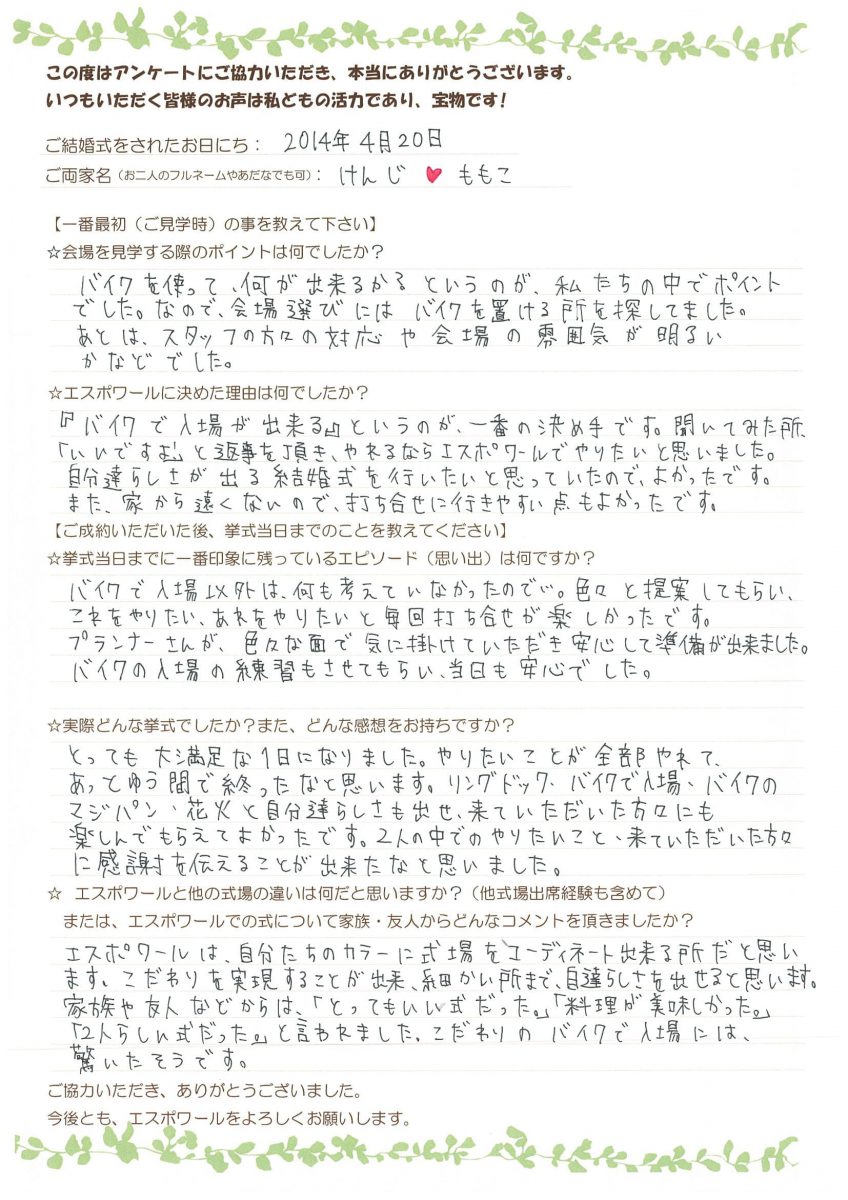 この度はアンケートにご協力いただき、本当にありがとうございます。
いつもいただく皆様のお声は私どもの活力であり、宝物です!
ご結婚式をされたお日にち： 2014年4月20日
ご両家名（お二人のフルネームやあだなでも可）： けんじ ♥ ももこ
【一番最初（ご見学時）の事を教えて下さい】
☆会場を見学する際のポイントは何でしたか？
バイクを使って、何が出来るかるというのが、私たちの中でポイント
でした。なので、会場選びにはバイクを置ける所を探してました。
あとは、スタッフの方々の対応や会場の雰囲気が明るい
かなどでした。
☆エスポワールに決めた理由は何でしたか？
『バイクで入場が出来る』というのが、一番の決め手です。聞いてみた所、
「いいですよ!」と返事を頂き、やれるならエスポワールでやりたいと思いました。
自分達らしさが出る結婚式を行いたいと思っていたので、よかったです。
また、家から遠くないので、打ち合せに行きやすい点もよかったです。
【ご成約いただいた後、挙式当日までのことを教えてください】
☆挙式当日までに一番印象に残っているエピソード（思い出）は何ですか？
バイクで入場以外は、何も考えていなかったので…。色々と提案してもらい、
これをやりたい、あれをやりたいと毎回打ち合せが楽しかったです。
プランナーさんが、色々な面で気に掛けていただき安心して準備が出来ました。
バイクの入場の練習もさせてもらい、当日も安心でした。
☆実際どんな挙式でしたか？また、どんな感想をお持ちですか？
とっても大満足な1日になりました。やりたいことが全部やれて、
あっとゆう間で終ったなと思います。リングドック、バイクで入場、バイクの
マジパン、花火と自分達らしさも出せ、来ていただいた方々にも
楽しんでもらえてよかったです。2人の中でのやりたいこと、来ていただいた方々
に感謝を伝えることが出来たなと思いました。
☆ エスポワールと他の式場の違いは何だと思いますか？（他式場出席経験も含めて）
または、エスポワールでの式について家族・友人からどんなコメントを頂きましたか？
エスポワールは、自分たちのカラーに式場をコーディネート出来る所だと思い
ます。こだわりを実現することが出来、細かい所まで、自達らしさを出せると思います。
家族や友人などからは、「とってもいい式だった。」「料理が美味しかった。」
「2人らしい式だった。」と言われました。こだわりのバイクで入場には、
驚いたそうです。
ご協力いただき、ありがとうございました。
今後とも、エスポワールをよろしくお願いします。